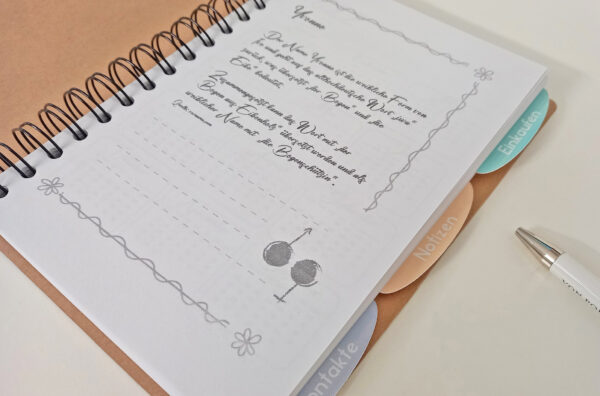 Yvonne
Der Name Yvonne ist die weibliche Form von
und geht auf das althochdeutsche Wort „iwa“
zurück, was übersetzt „der Bogen“ und „die
Eibe“ bedeutet.
Zusammengesetzt kann das Wort mit „der
Bogen aus Eibenholz“ übersetzt werden und als
weiblicher Name mit „die Bogenschützin“.
Einkaufen
Notizen
ontakte